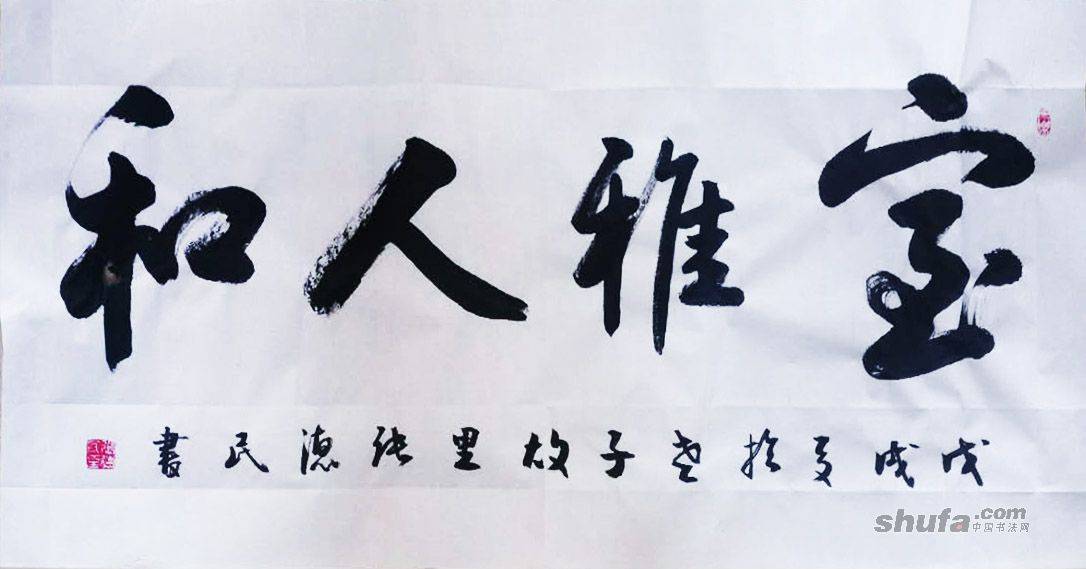 室雅人和
戊戌夏於老子故里张德民書
shufa.com
中国书法网